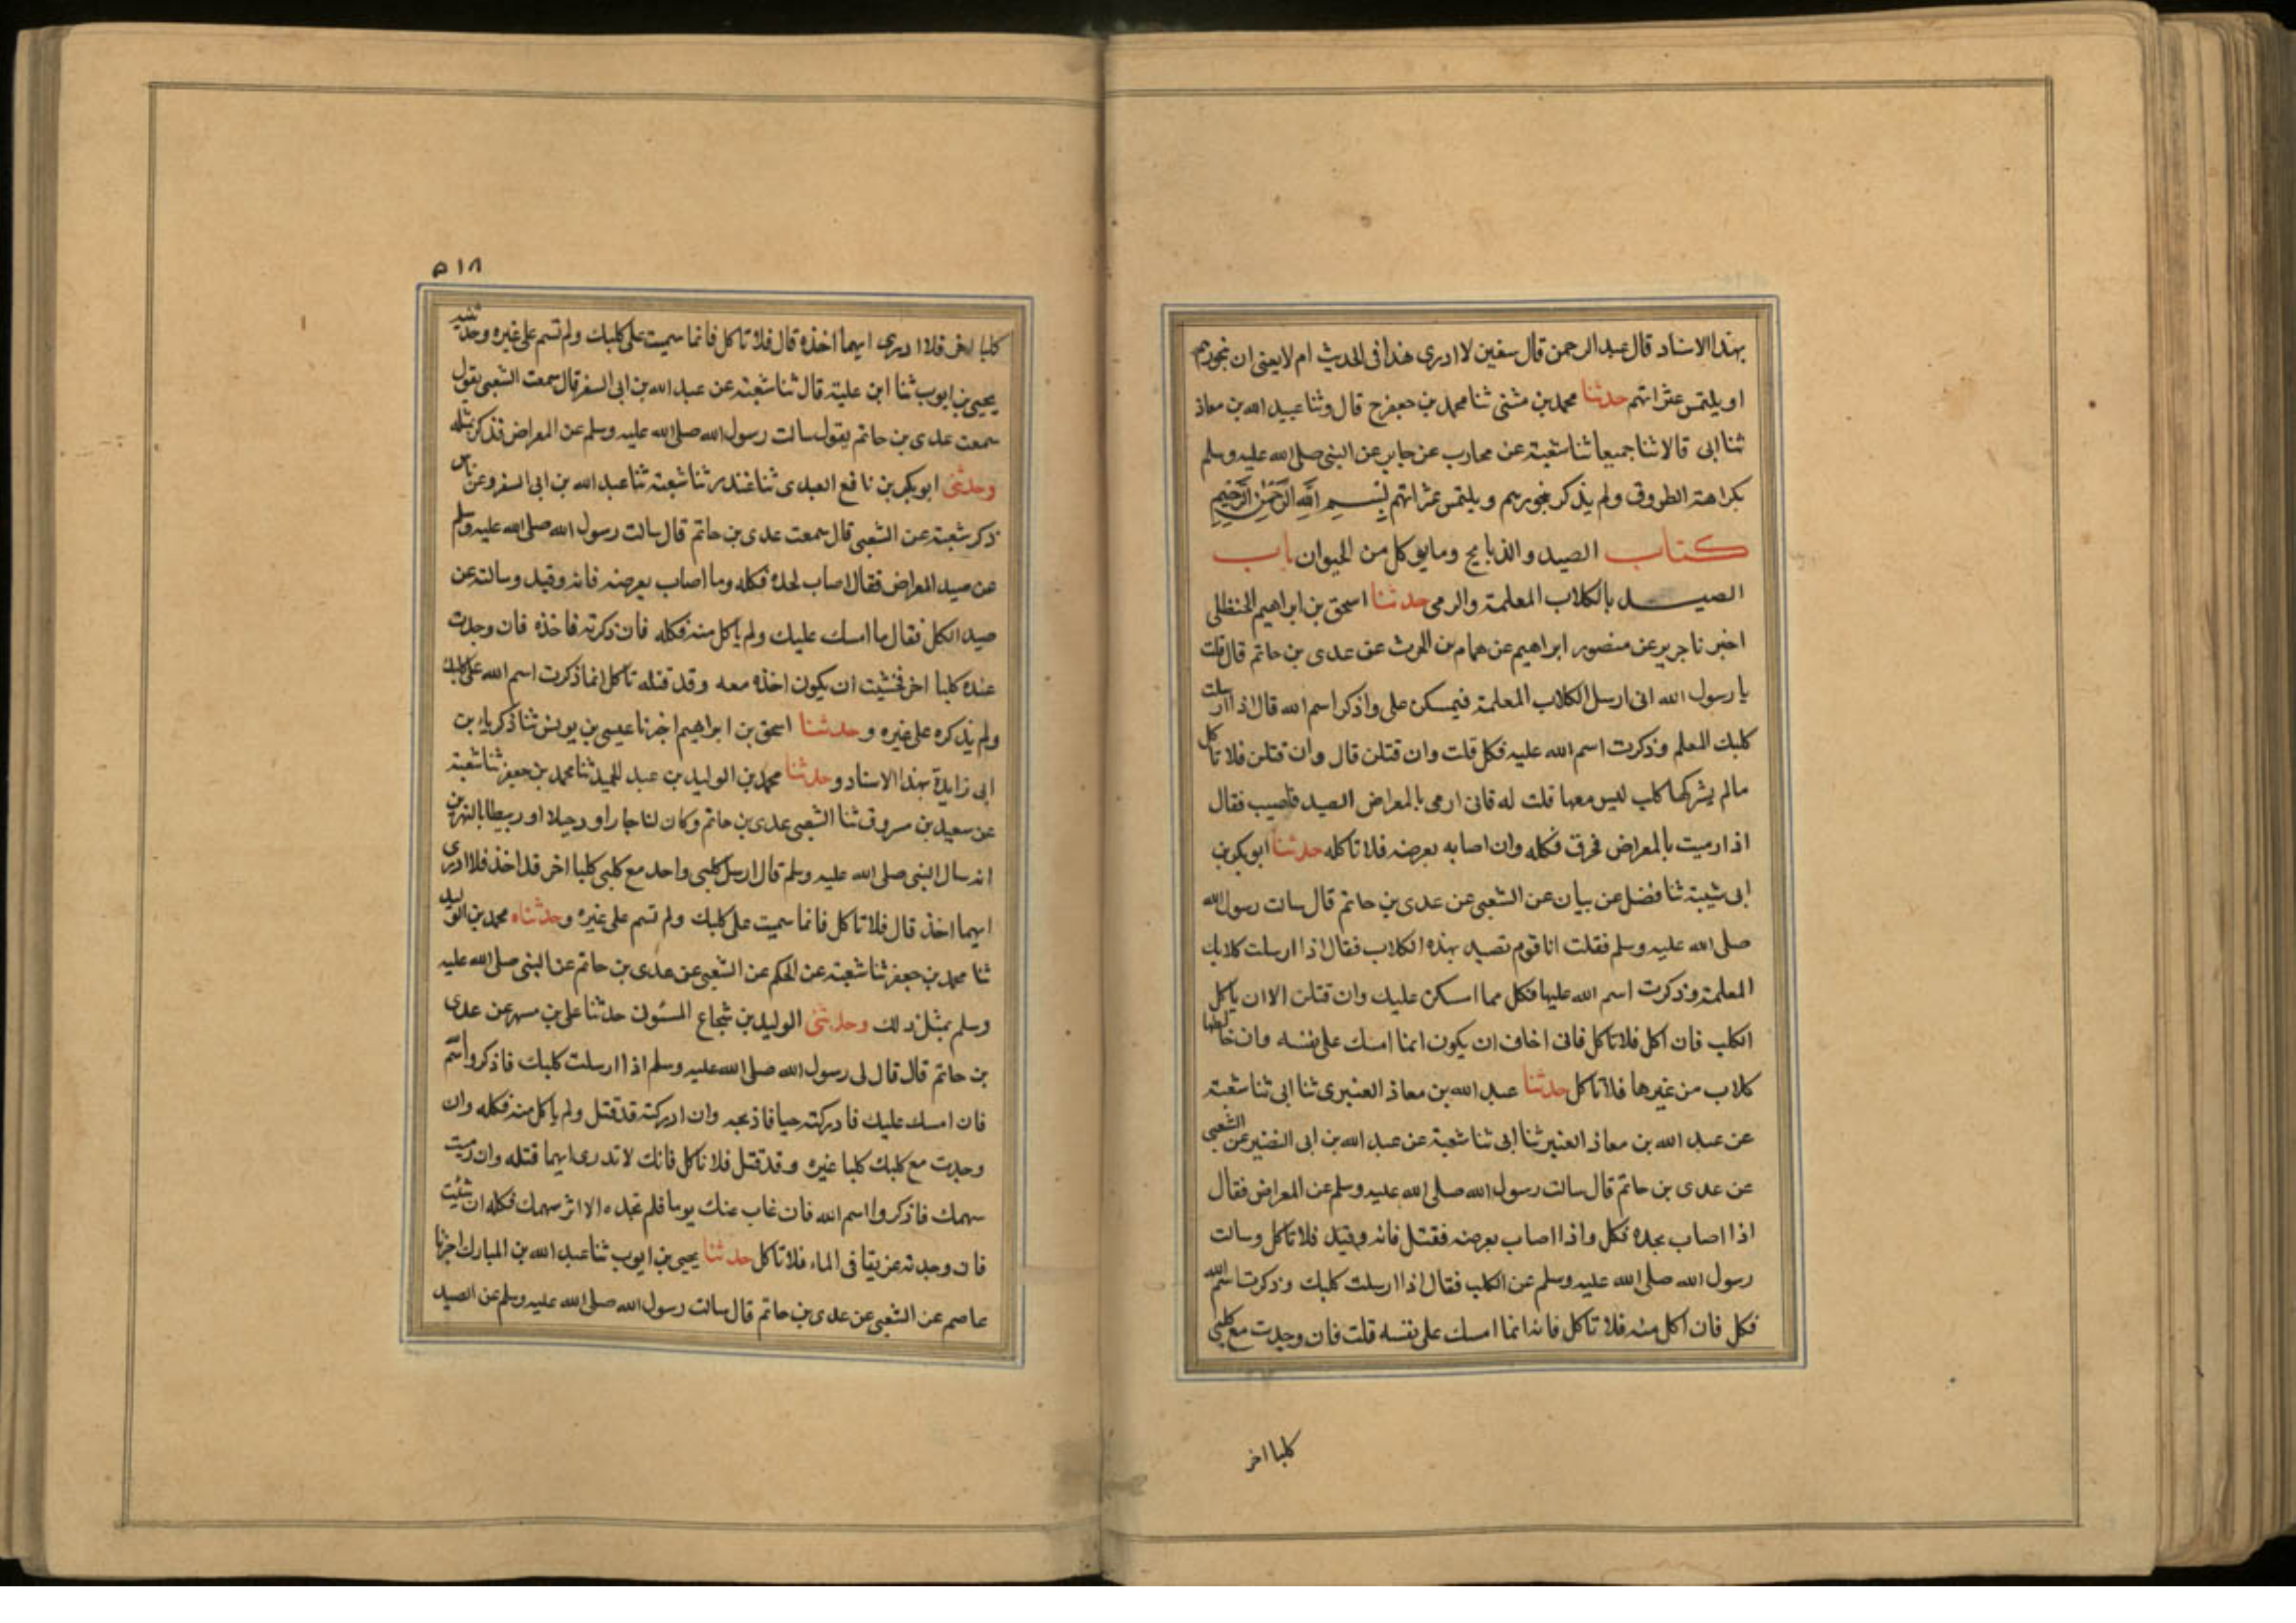 بهذا الاسناد قال عبد الرحمن قال سفين لا ادرى هذا فى الحديث ام لا يعنى ان يتخونهم
او يلتمس عثراتهم حدثنا محمد بن مثنى ثنا محمد بن جعفر ح قال وثنا عبيد الله بن معاذ
ثنا ابى قالا ثنا جميعا ثنا شعبة عن محارب عن جابر عن النبى صلى الله عليه وسلم
بكراهة الطروق ولم يذكر يتخونهم ويلتمس عثراتهم بسم الله الرحمن الرحيم
كتاب الصيد والذبايح وما يوكل من الحيوان باب
الصيد بالكلاب المعلمة والرمى حدثنا اسحق بن ابراهيم الحنظلى
اخبرنا جرير عن منصور ابراهيم عن همام بن الحرث عن عدى بن حاتم قال قلت
يا رسول الله انى ارسل الكلاب المعلمة فيمسكن على واذكر اسم الله قال اذا ارسلت
كلبك المعلم وذكرت اسم الله عليه فكل قلت وان قتلن قال وان قتلن فلا تاكل
مالم يشركها كلب ليس معها قلت له فانى ارمى بالمعراض الصيد فاصيب فقال
اذا رميت بالمعراض فخرق فكله وان اصابه بعرضه فلا تاكله حدثنا ابو بكر بن
ابى شيبة ثنا فضل عن بيان عن الشعبى عن عدى بن حاتم قال سالت رسول الله
صلى الله عليه وسلم فقلت انا قوم نصيد بهذه الكلاب فقال اذا ارسلت كلابك
المعلمة وذكرت اسم الله عليها فكل مما امسكن عليك وان قتلن الا ان ياكل
الكلب فان اكل فلا تاكل فانى اخاف ان يكون انما امسك على نفسه وان خالطها
كلاب من غيرها فلا تاكل حدثنا عبد الله بن معاذ العنبرى ثنا ابى ثنا شعبة
عن عبد الله بن معاذ العنبر ثنا ابى ثنا شعبة عن عبد الله بن ابى عن الشعبى
عن عدى بن حاتم قال سالت رسول الله صلى الله عليه وسلم عن المعراض فقال
اذا اصاب بحده فكل واذا اصاب بعرضه فقتل فانه وقيذ فلا تاكل وسالت
رسول الله صلى الله عليه وسلم عن الكلب فقال اذا ارسلت كلبك وذكرت اسم الله
فكل فان اكل منه فلا تاكل فانه انما امسك على نفسه قلت فان وجدت مع كلبى
كلبا اخر
٥١٨
كلبا اخر فلا ادرى ايهما اخذه قال فلا تاكل فانما سميت على كلبك ولم تسم على غيره وحدثنيه
يحيى بن ايوب ثنا ابن علية قال ثنا شعبة عن عبد الله بن ابى السفر قال سمعت الشعبى يقول
سمعت عدى بن حاتم يقول سالت رسول الله صلى الله عليه وسلم عن المعراض فذكر بمثله
وحدثنى ابو بكر بن نافع العبدى ثنا غندر ثنا شعبة ثنا عبد الله بن ابى السفر وعن ناس
ذكر شعبة عن الشعبى قال سمعت عدى بن حاتم قال سالت رسول الله صلى الله عليه وسلم
عن صيد المعراض فقال اصاب بحده فكله وما اصاب بعرضه فانه وقيذ وسالته عن
صيد الكل فقال ما امسك عليك ولم ياكل منه فكله فان ذكرته فاخذه فان وجدت
عنده كلبا اخر فخشيت ان يكون اخذه معه وقد قتله تاكل انما ذكرت اسم الله على كلبك
ولم يذكره على غيره وحدثنا اسحق بن ابراهيم اخبرنا عيسى بن يونس ثنا ذكرياء بن
ابى زايدة بهذا الاسناد وحدثنا محمد بن الوليد بن عبد الحميد ثنا محمد بن جعفر ثنا شعبة
عن سعيد بن سروق ثنا الشعبى عدى بن حاتم وكان لنا جارا ودخيلا او ربيطا بالنهرين
انه سال النبى صلى الله عليه وسلم قال ارسل كلبى واحد مع كلبى كلبا اخر قد اخذ فلا ادرى
ايهما اخذ قال فلا تاكل فانما سميت على كلبك ولم تسم على غيره وحدثناه محمد بن الوليد
ثنا محمد بن جعفر ثنا شعبة عن الحكم عن الشعبى عن عدى بن حاتم عن النبى صلى الله عليه
وسلم بمثل ذلك وحدثنى الوليد بن شجاع السكونى حدثنا على بن مسهر عن عدى
بن حاتم قال قال لى رسول الله صلى الله عليه وسلم اذا ارسلت كلبك فاذكروا اسم
فان امسك عليك فادركته حيا فاذبحه وان ادركته قد قتل ولم ياكل منه فكله وان
وجدت مع كلبك كلبا غيره وقد قتل فلا تاكل فانك لا تدرى ايهما قتله وان رميت
سهمك فاذكروا اسم الله فان غاب عنك يوما فلم تجده الا اثر سهمك فكله ان شئت
فان وجدته غريقا فى الماء فلا تاكل حدثنا يحيى بن ايوب ثنا عبد الله بن المبارك اخبرنا
عاصم عن الشعبى عن عدى بن حاتم قال سالت رسول الله صلى الله عليه وسلم عن الصيد